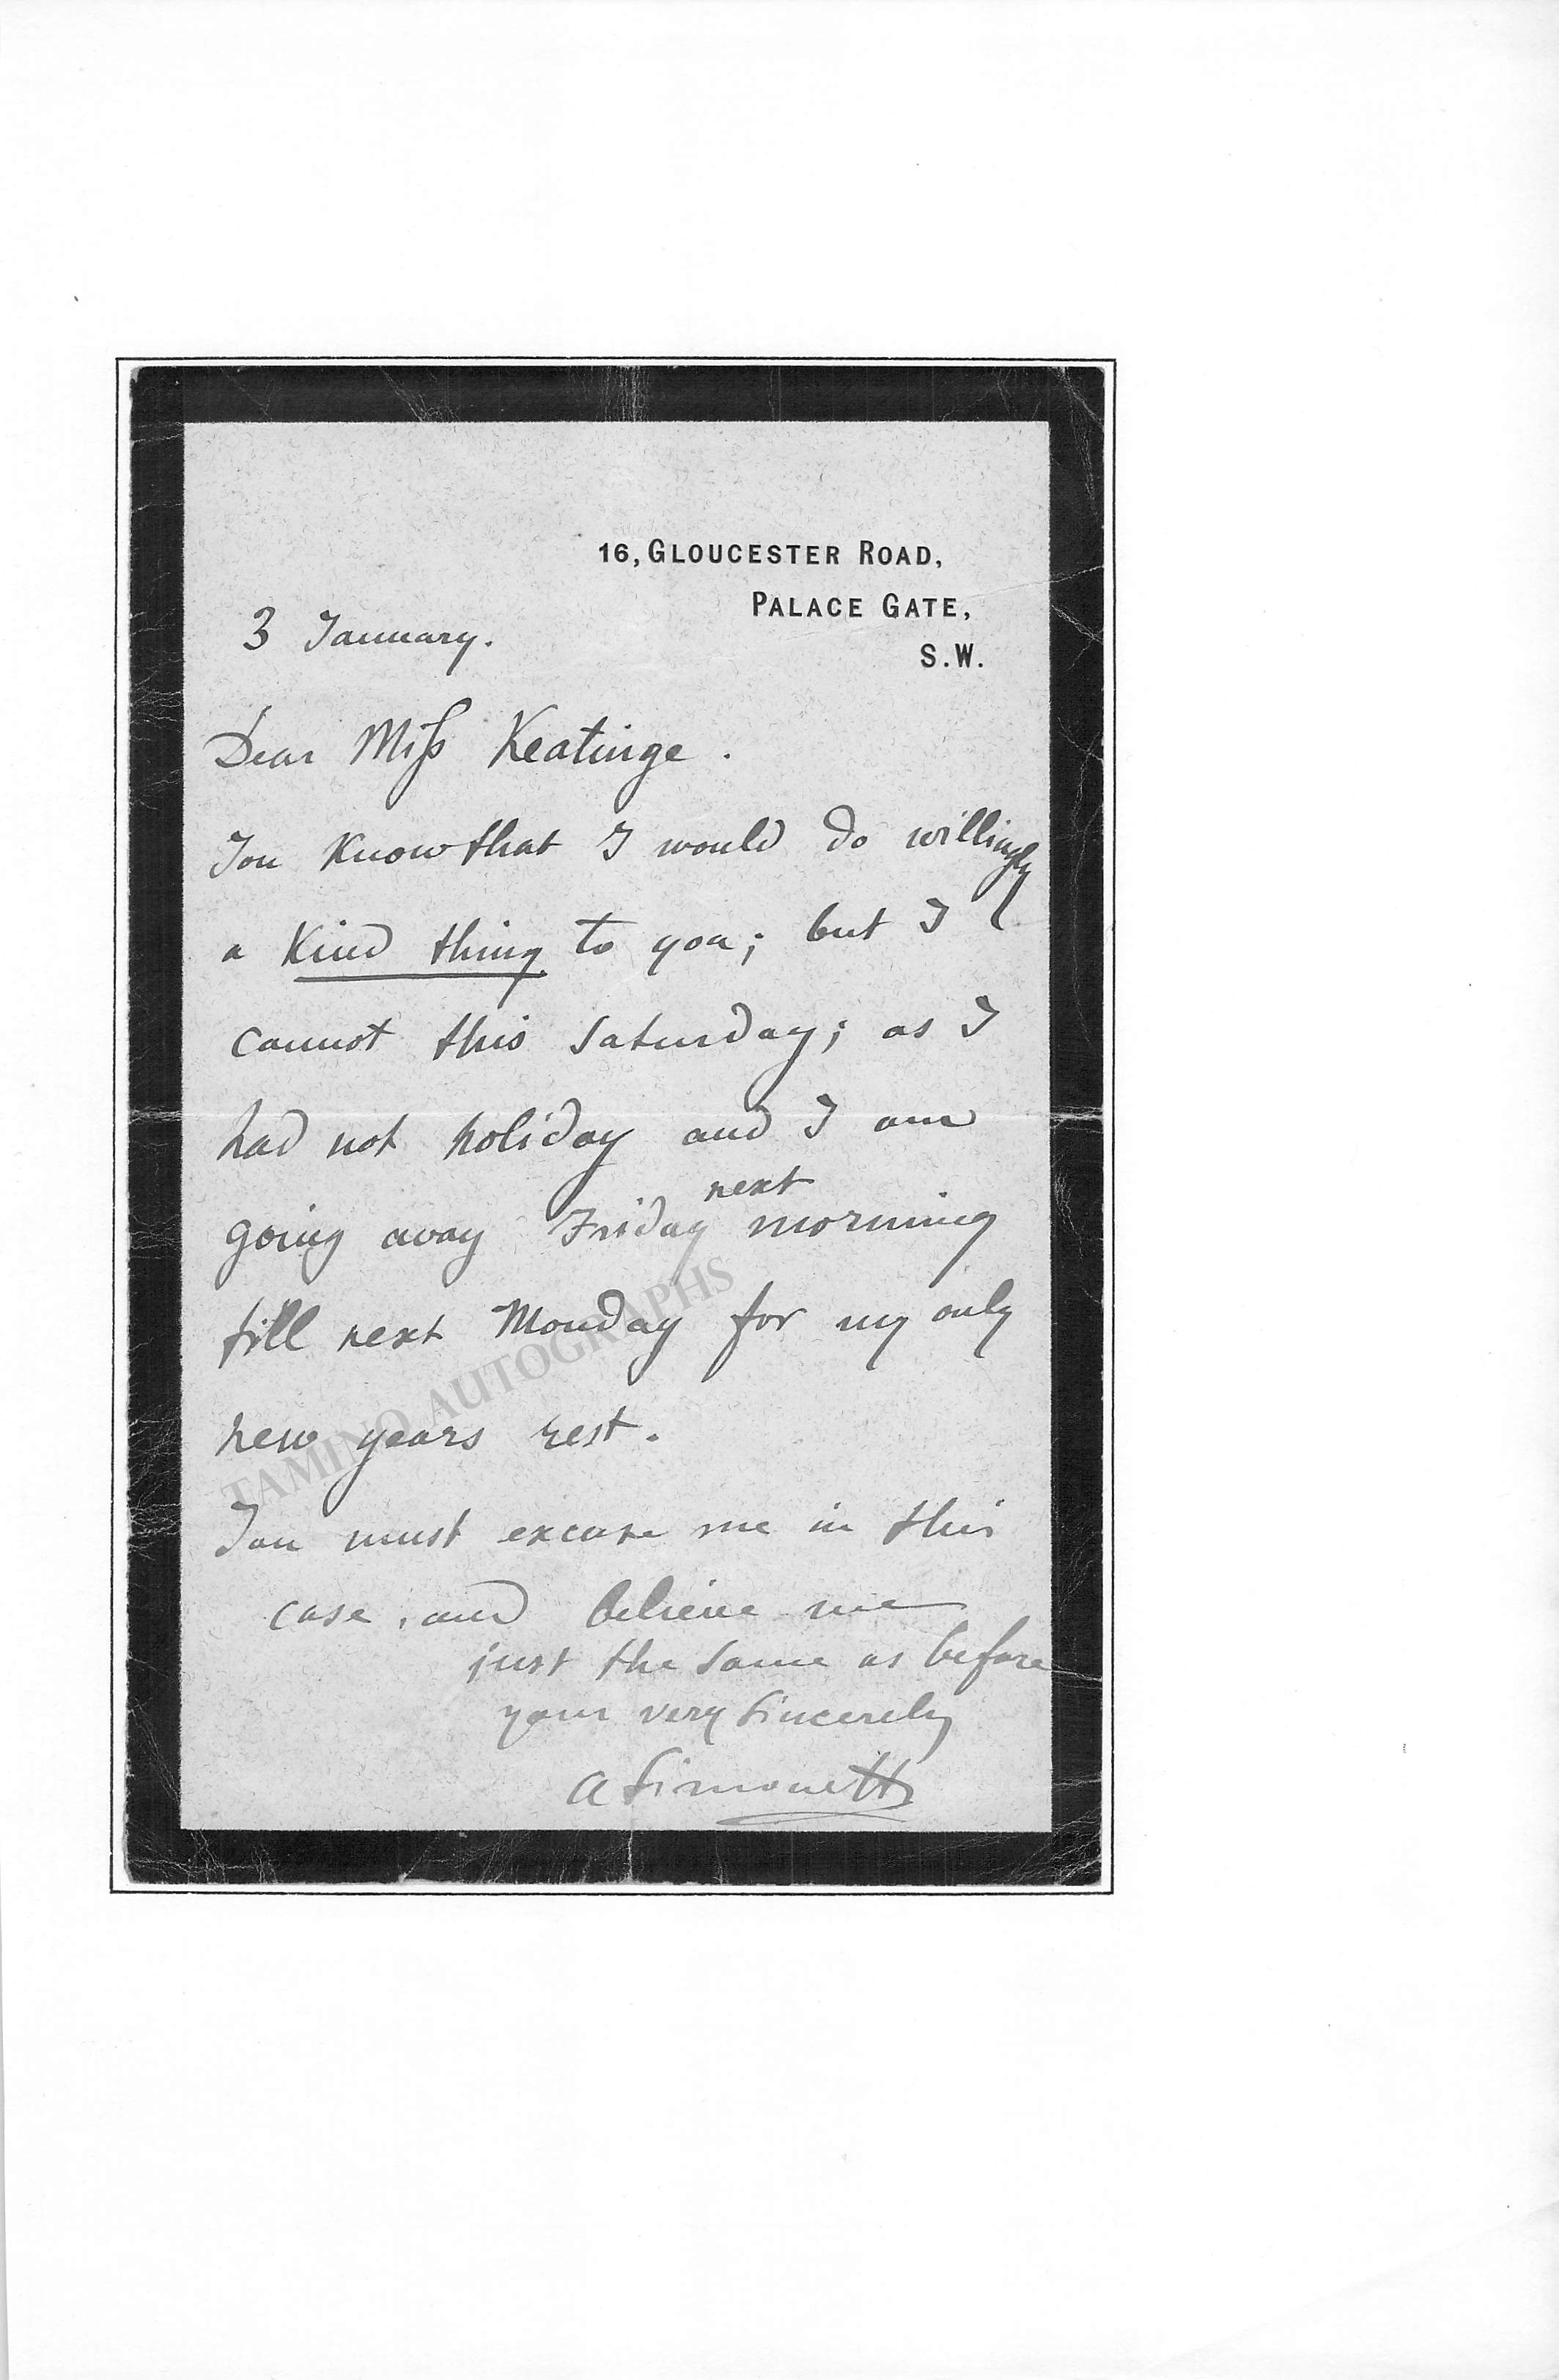 16, GLOUCESTER ROAD,
PALACE GATE,
S.W.
3 January.
Dear Miss Keatinge.
You Know that I would do willingly
a Kind thing to you; but I
cannot this Saturday; as I
had not holiday and I am
going away Friday next morning
till next Monday for my only
new years rest.
You must excuse me in this
case, and believe me
just the same as before
your very sincerely
A Simonetti
TAMINO AUTOGRAPHS